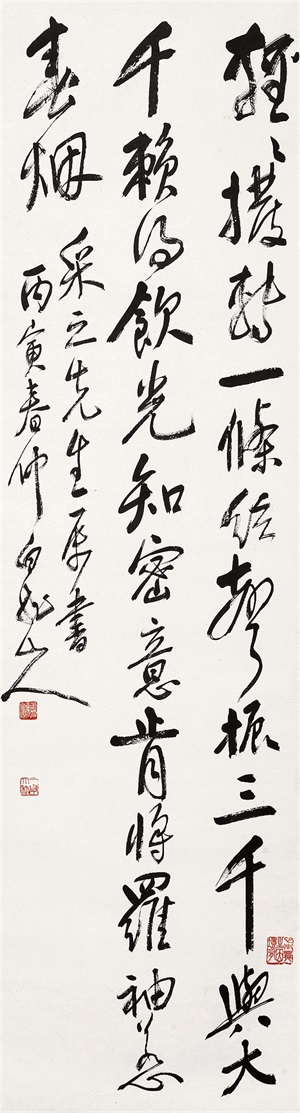 撥轉一條絃聲振三千與大
千賴得飲光知密意肯將羅袖惹
春烟
采之先生屬書
丙寅春仲白龍山人